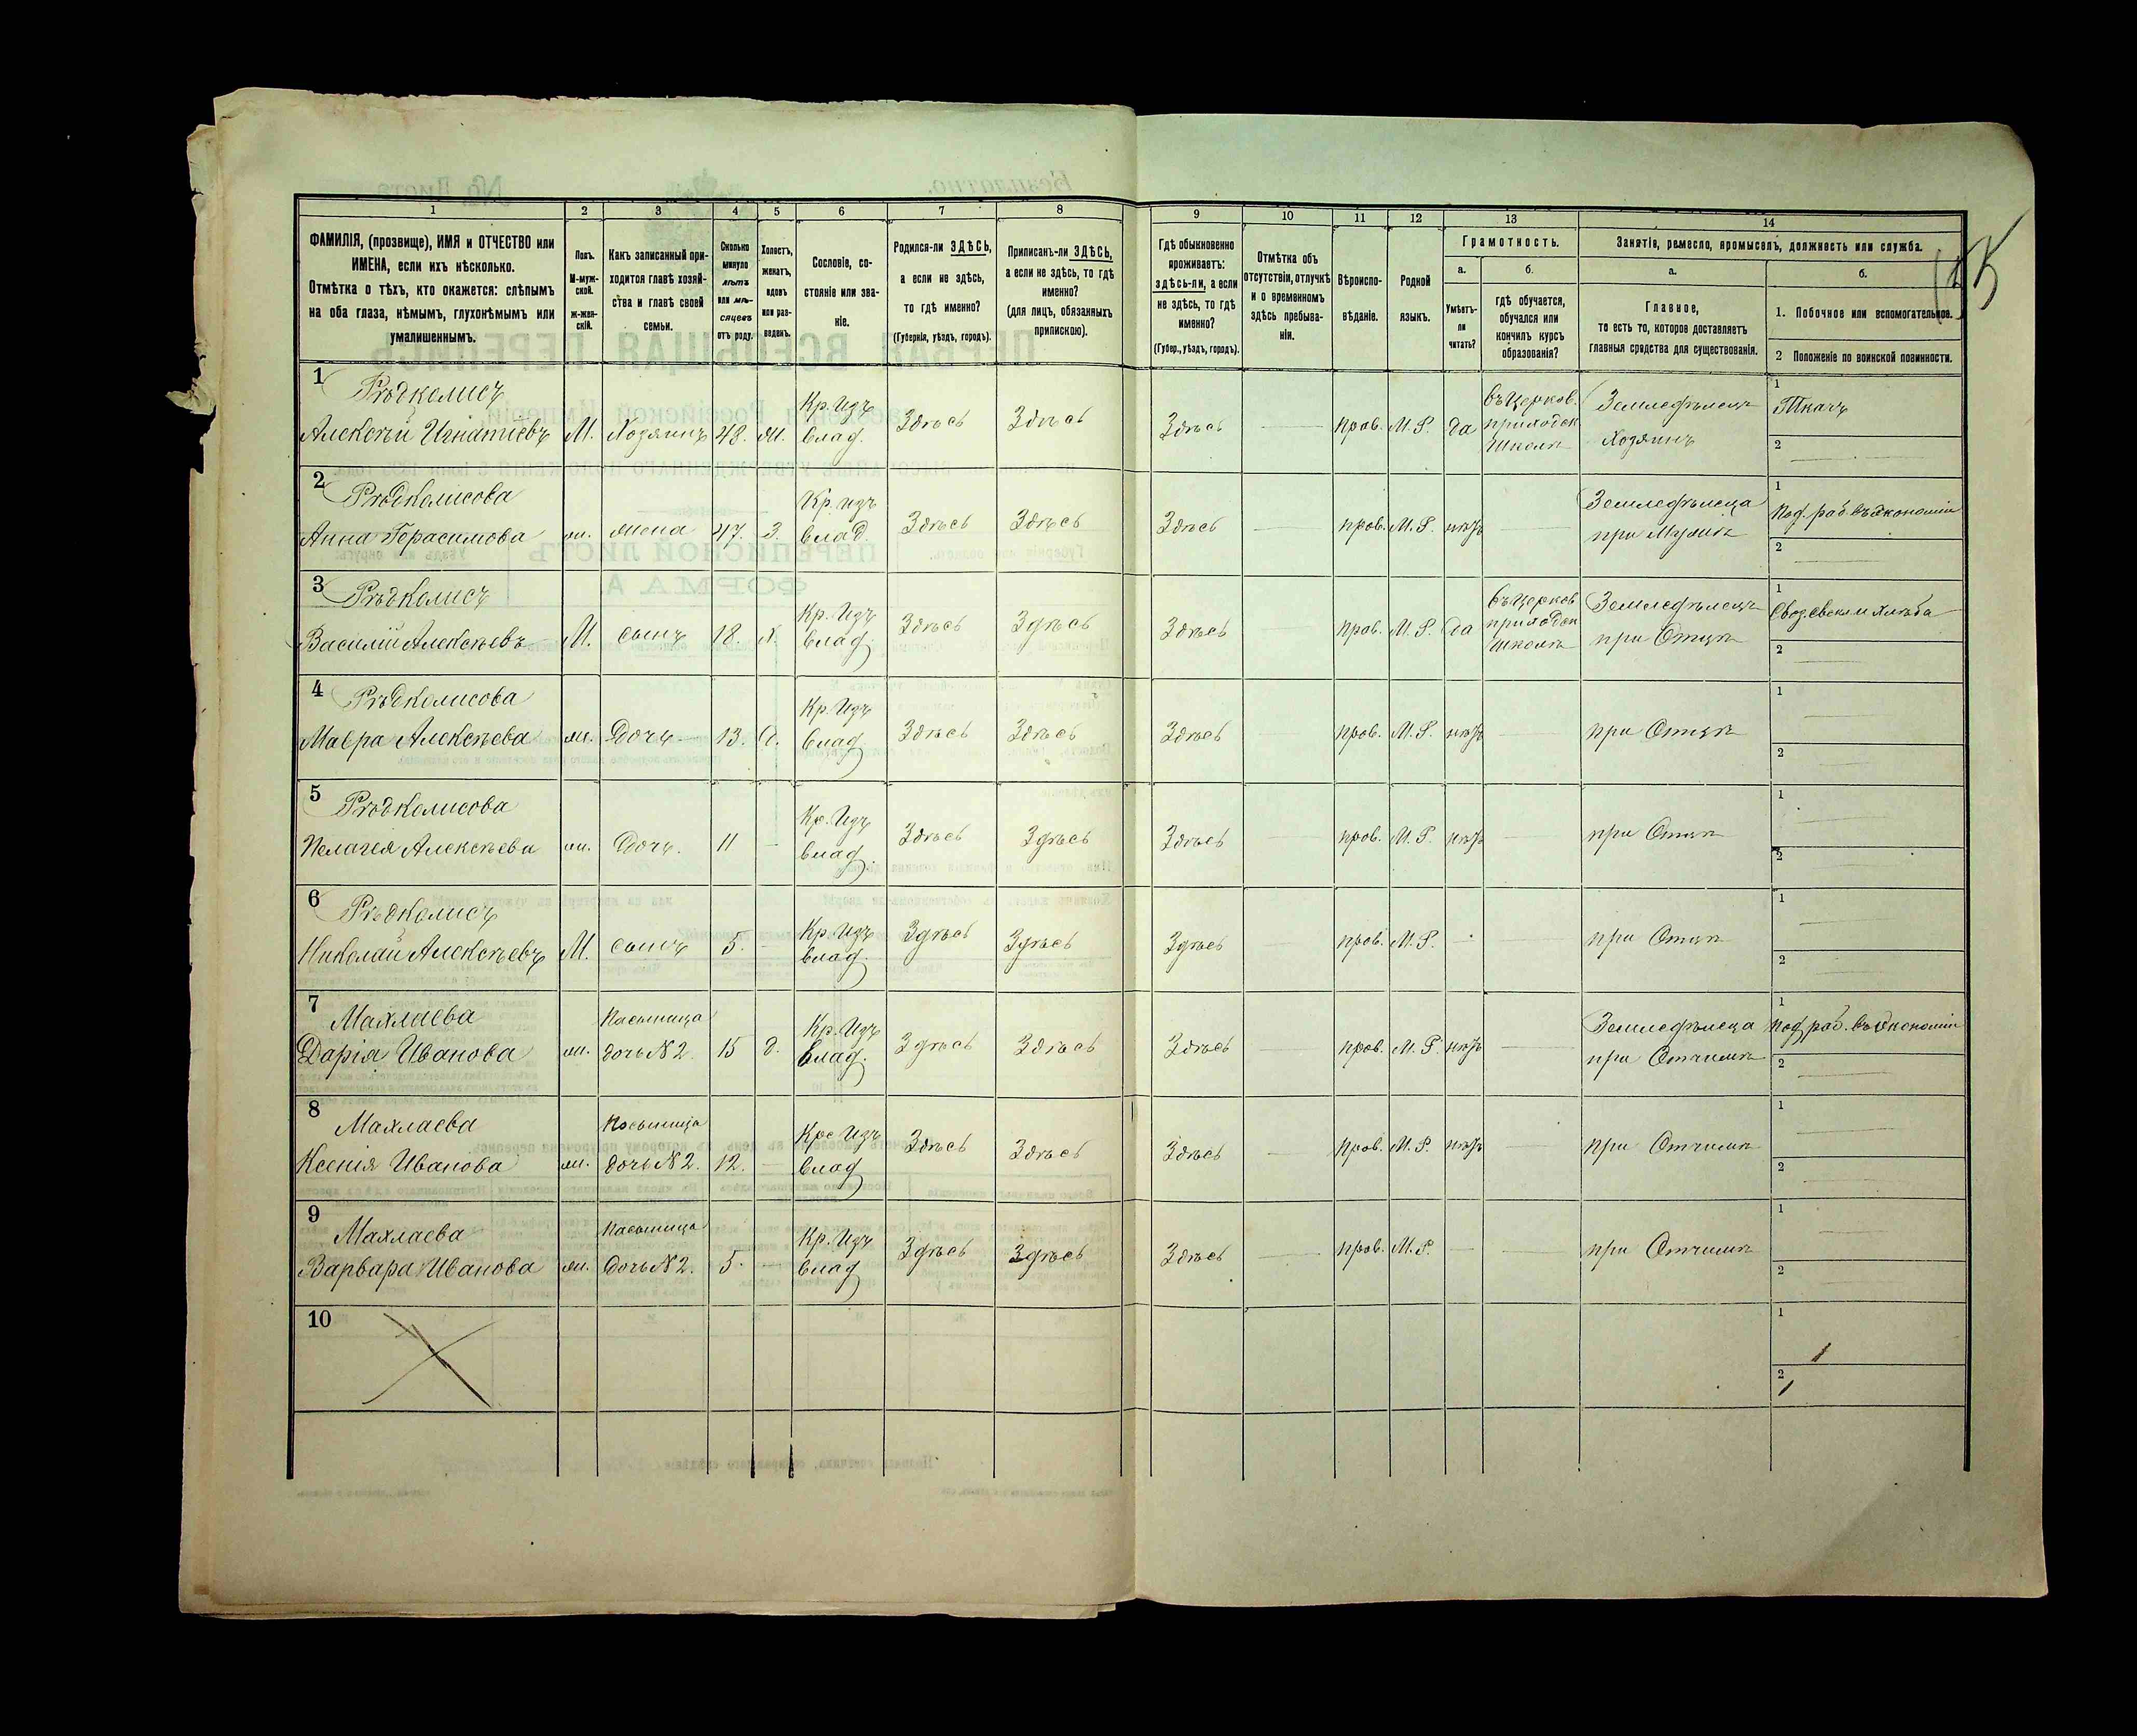 1 2 3 4 5 6 7 8 9 10 11 12 13 14
ФАМИЛІЯ, (прозвище), ИМЯ и ОТЧЕСТВО или
ИМЕНА, если ихъ нѣсколько.
Отмѣтка о тѣхъ, кто окажется: слѣпымъ
на оба глаза, нѣмымъ, глухонѣмымъ или
умалишеннымъ.
Полъ.
М-муж-
ской.
ж-жен-
скій.
Какъ записанный при-
ходится главѣ хозяй-
ства и главѣ своей
семьи.
Сколько
минуло
лѣтъ
или мѣ-
сяцевъ
отъ роду.
Холостъ,
женатъ,
вдовъ
или раз-
веденъ.
Сословіе, со-
стояніе или зва-
ніе.
Родился-ли ЗДѢСЬ,
а если не здѣсь,
то гдѣ именно?
(Губернія, уѣздъ, городъ).
Приписанъ-ли ЗДѢСЬ,
а если не здѣсь, то гдѣ
именно?
(для лицъ, обязанныхъ
припискою).
Гдѣ обыкновенно
проживаетъ:
здѣсь-ли, а если
не здѣсь, то гдѣ
именно?
(Губер., уѣздъ, городъ).
Отмѣтка объ
отсутствіи, отлучкѣ
и о временномъ
здѣсь пребыва-
ніи.
Вѣроиспо-
вѣданіе.
Родной
языкъ.
Грамотность.
а.
Умѣетъ-
ли
читать?
б.
гдѣ обучается,
обучался или
кончилъ курсъ
образованія?
Занятіе, ремесло, промыселъ, должность или служба.
а.
Главное,
то есть то, которое доставляетъ
главныя средства для существованія.
б.
1. Побочное или вспомогательное.
2 Положеніе по воинской повинности.
1 Рѣдколисъ Кр. изъ въ церков. Земледѣлецъ 1 Ткачъ
Алексѣй Игнатіевъ М. Хозяинъ 48. ж. влад. Здѣсь Здѣсь Здѣсь прав. М.Р. да приходск. школѣ Хозяинъ 2
2 Рѣдколисова Кр. изъ Земледѣлица 1 Под. раб. въ экономіи
Анна Герасимова ж. жена 47. З. влад. Здѣсь Здѣсь Здѣсь прав. М.Р. нѣтъ при Мужѣ 2
3 Рѣдколисъ Кр. изъ въ церков Земледѣлецъ 1
Василій Алексѣевъ М. сынъ 18. х. влад. Здѣсь Здѣсь Здѣсь прав. М.Р. да приходск школѣ при Отцѣ 2
4 Рѣдколисова Кр. изъ 1
Мавра Алексѣева ж. Дочь 13. влад Здѣсь Здѣсь Здѣсь прав. М.Р. нѣтъ при Отцѣ 2
5 Рѣдколисова Кр. изъ 1
Пелагея Алексѣева ж. Дочь. 11 влад. Здѣсь Здѣсь Здѣсь прав. М.Р. нѣтъ при Отцѣ 2
6 Рѣдколисъ Кр. изъ 1
Николай Алексѣевъ М. сынъ 5. влад. Здѣсь Здѣсь Здѣсь прав. М.Р. при Отцѣ 2
7 Махлаева Пасыница Кр. изъ Земледѣлица 1 Под. раб. въ экономіи
Дарія Иванова ж. дочь №2. 15 д. влад. Здѣсь Здѣсь Здѣсь прав. М.Р. нѣтъ при Отчимѣ 2
8 Махлаева Пасыница Кре изъ 1
Ксенія Иванова ж. дочь №2. 12. влад Здѣсь Здѣсь Здѣсь прав. М.Р. нѣтъ при Отчимѣ 2
9 Махлаева Пасыница Кр. изъ 1
Варвара Иванова ж. дочь №2. 5. влад Здѣсь Здѣсь Здѣсь прав. М.Р. при Отчимѣ 2
10 1
2